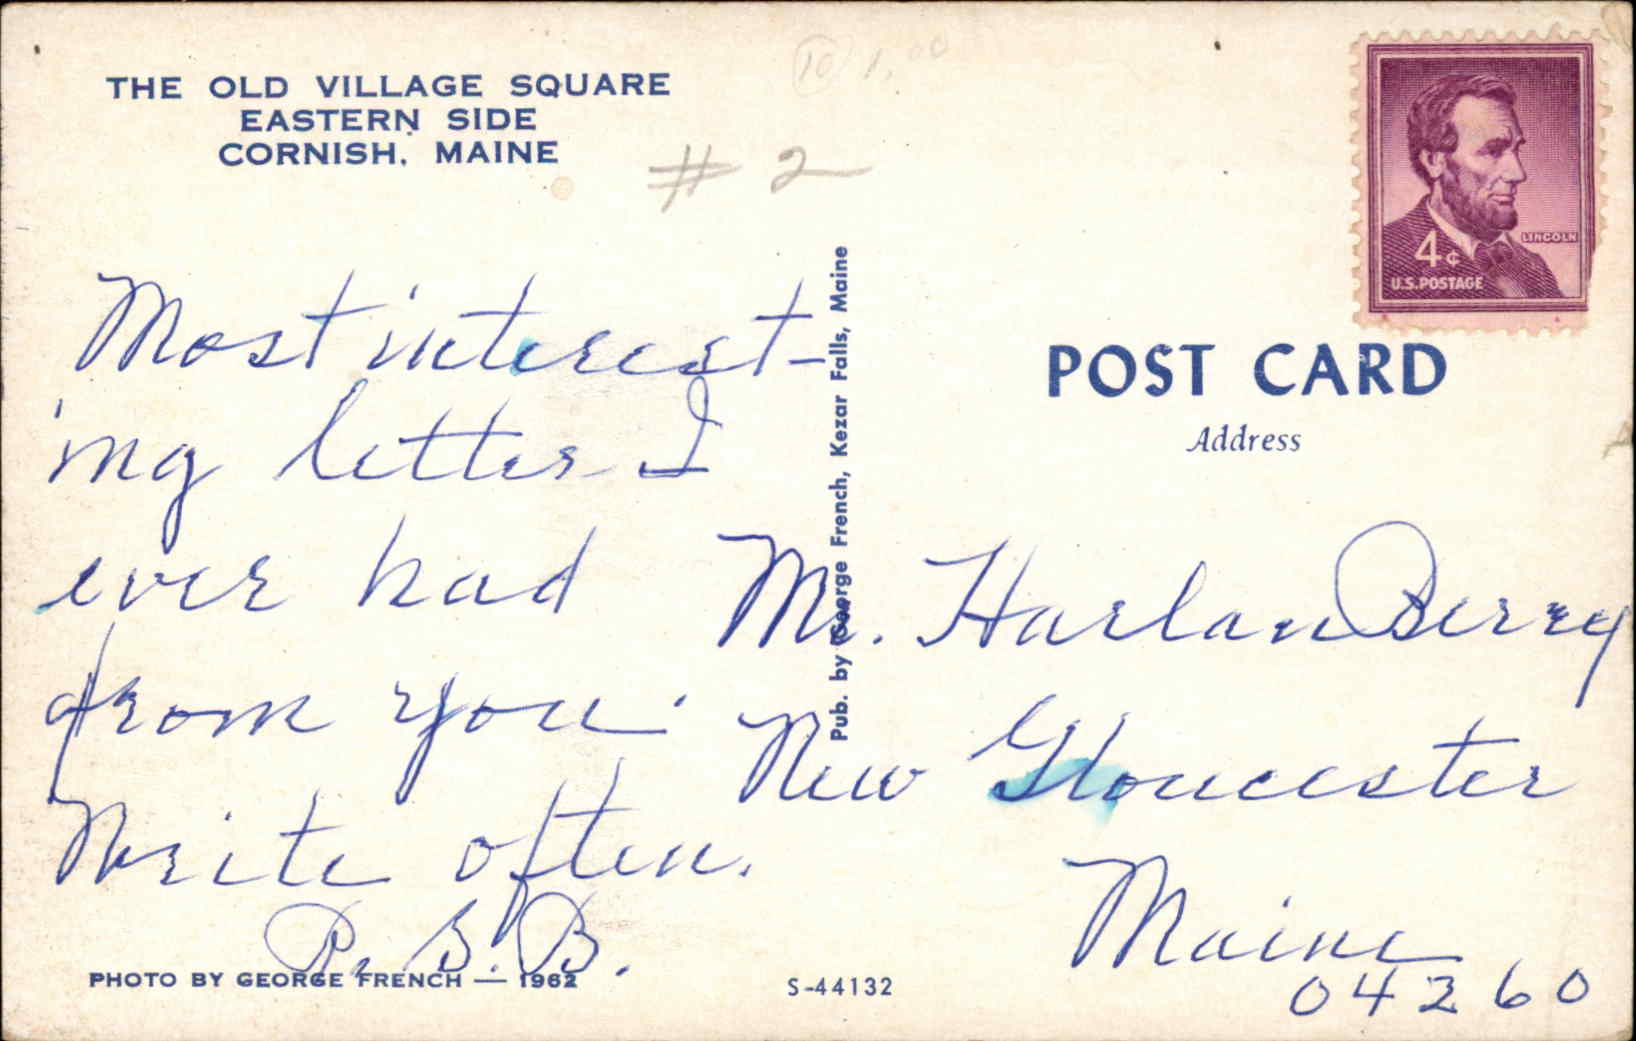 THE OLD VILLAGE SQUARE
EASTERN SIDE
CORNISH, MAINE
10 1.00
# 2
LINCOLN
4¢
U.S.POSTAGE
Most interest-
ing letter I
ever had
from you.
Write often.
R. S. B.
PHOTO BY GEORGE FRENCH — 1962
Pub. by George French, Kezar Falls, Maine
S-44132
POST CARD
Address
Mr. Harlan Berry
New Gloucester
Maine
04260